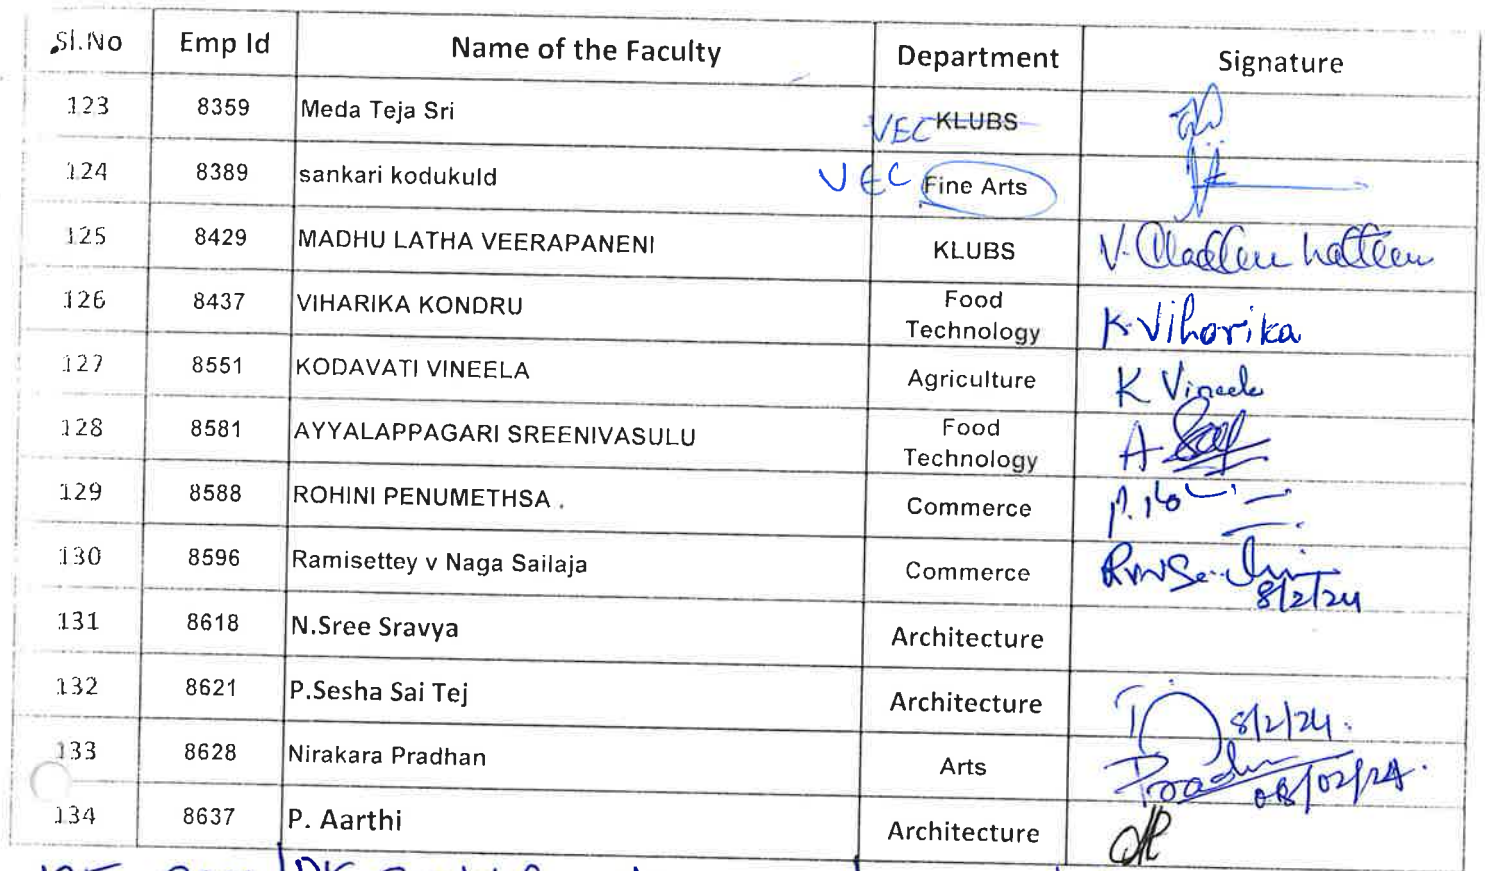 Sl.No Emp Id Name of the Faculty Department Signature
123 8359 Meda Teja Sri VEC KLUBS
124 8389 sankari kodukuld VEC Fine Arts
125 8429 MADHU LATHA VEERAPANENI KLUBS V. Madhu Latha
126 8437 VIHARIKA KONDRU Food Technology K. Viharika
127 8551 KODAVATI VINEELA Agriculture K Vineela
128 8581 AYYALAPPAGARI SREENIVASULU Food Technology A
129 8588 ROHINI PENUMETHSA . Commerce
130 8596 Ramisettey v Naga Sailaja Commerce 8/2/24
131 8618 N.Sree Sravya Architecture
132 8621 P.Sesha Sai Tej Architecture 8/2/24.
133 8628 Nirakara Pradhan Arts 08/02/24.
134 8637 P. Aarthi Architecture